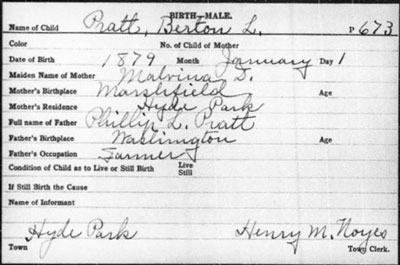 BIRTH—MALE.
Name of Child Pratt, Berton L. P 673
Color No. of Child of Mother
Date of Birth 1879 Month January Day 1
Maiden Name of Mother Malvina S.
Mother's Birthplace Marshfield Age
Mother's Residence Hyde Park
Full name of Father Phillip L. Pratt
Father's Birthplace Washington Age
Father's Occupation Farmer
Condition of Child as to Live or Still Birth Live
Still
If Still Birth the Cause
Name of Informant
Hyde Park Henry M. Noyes
Town Town Clerk.